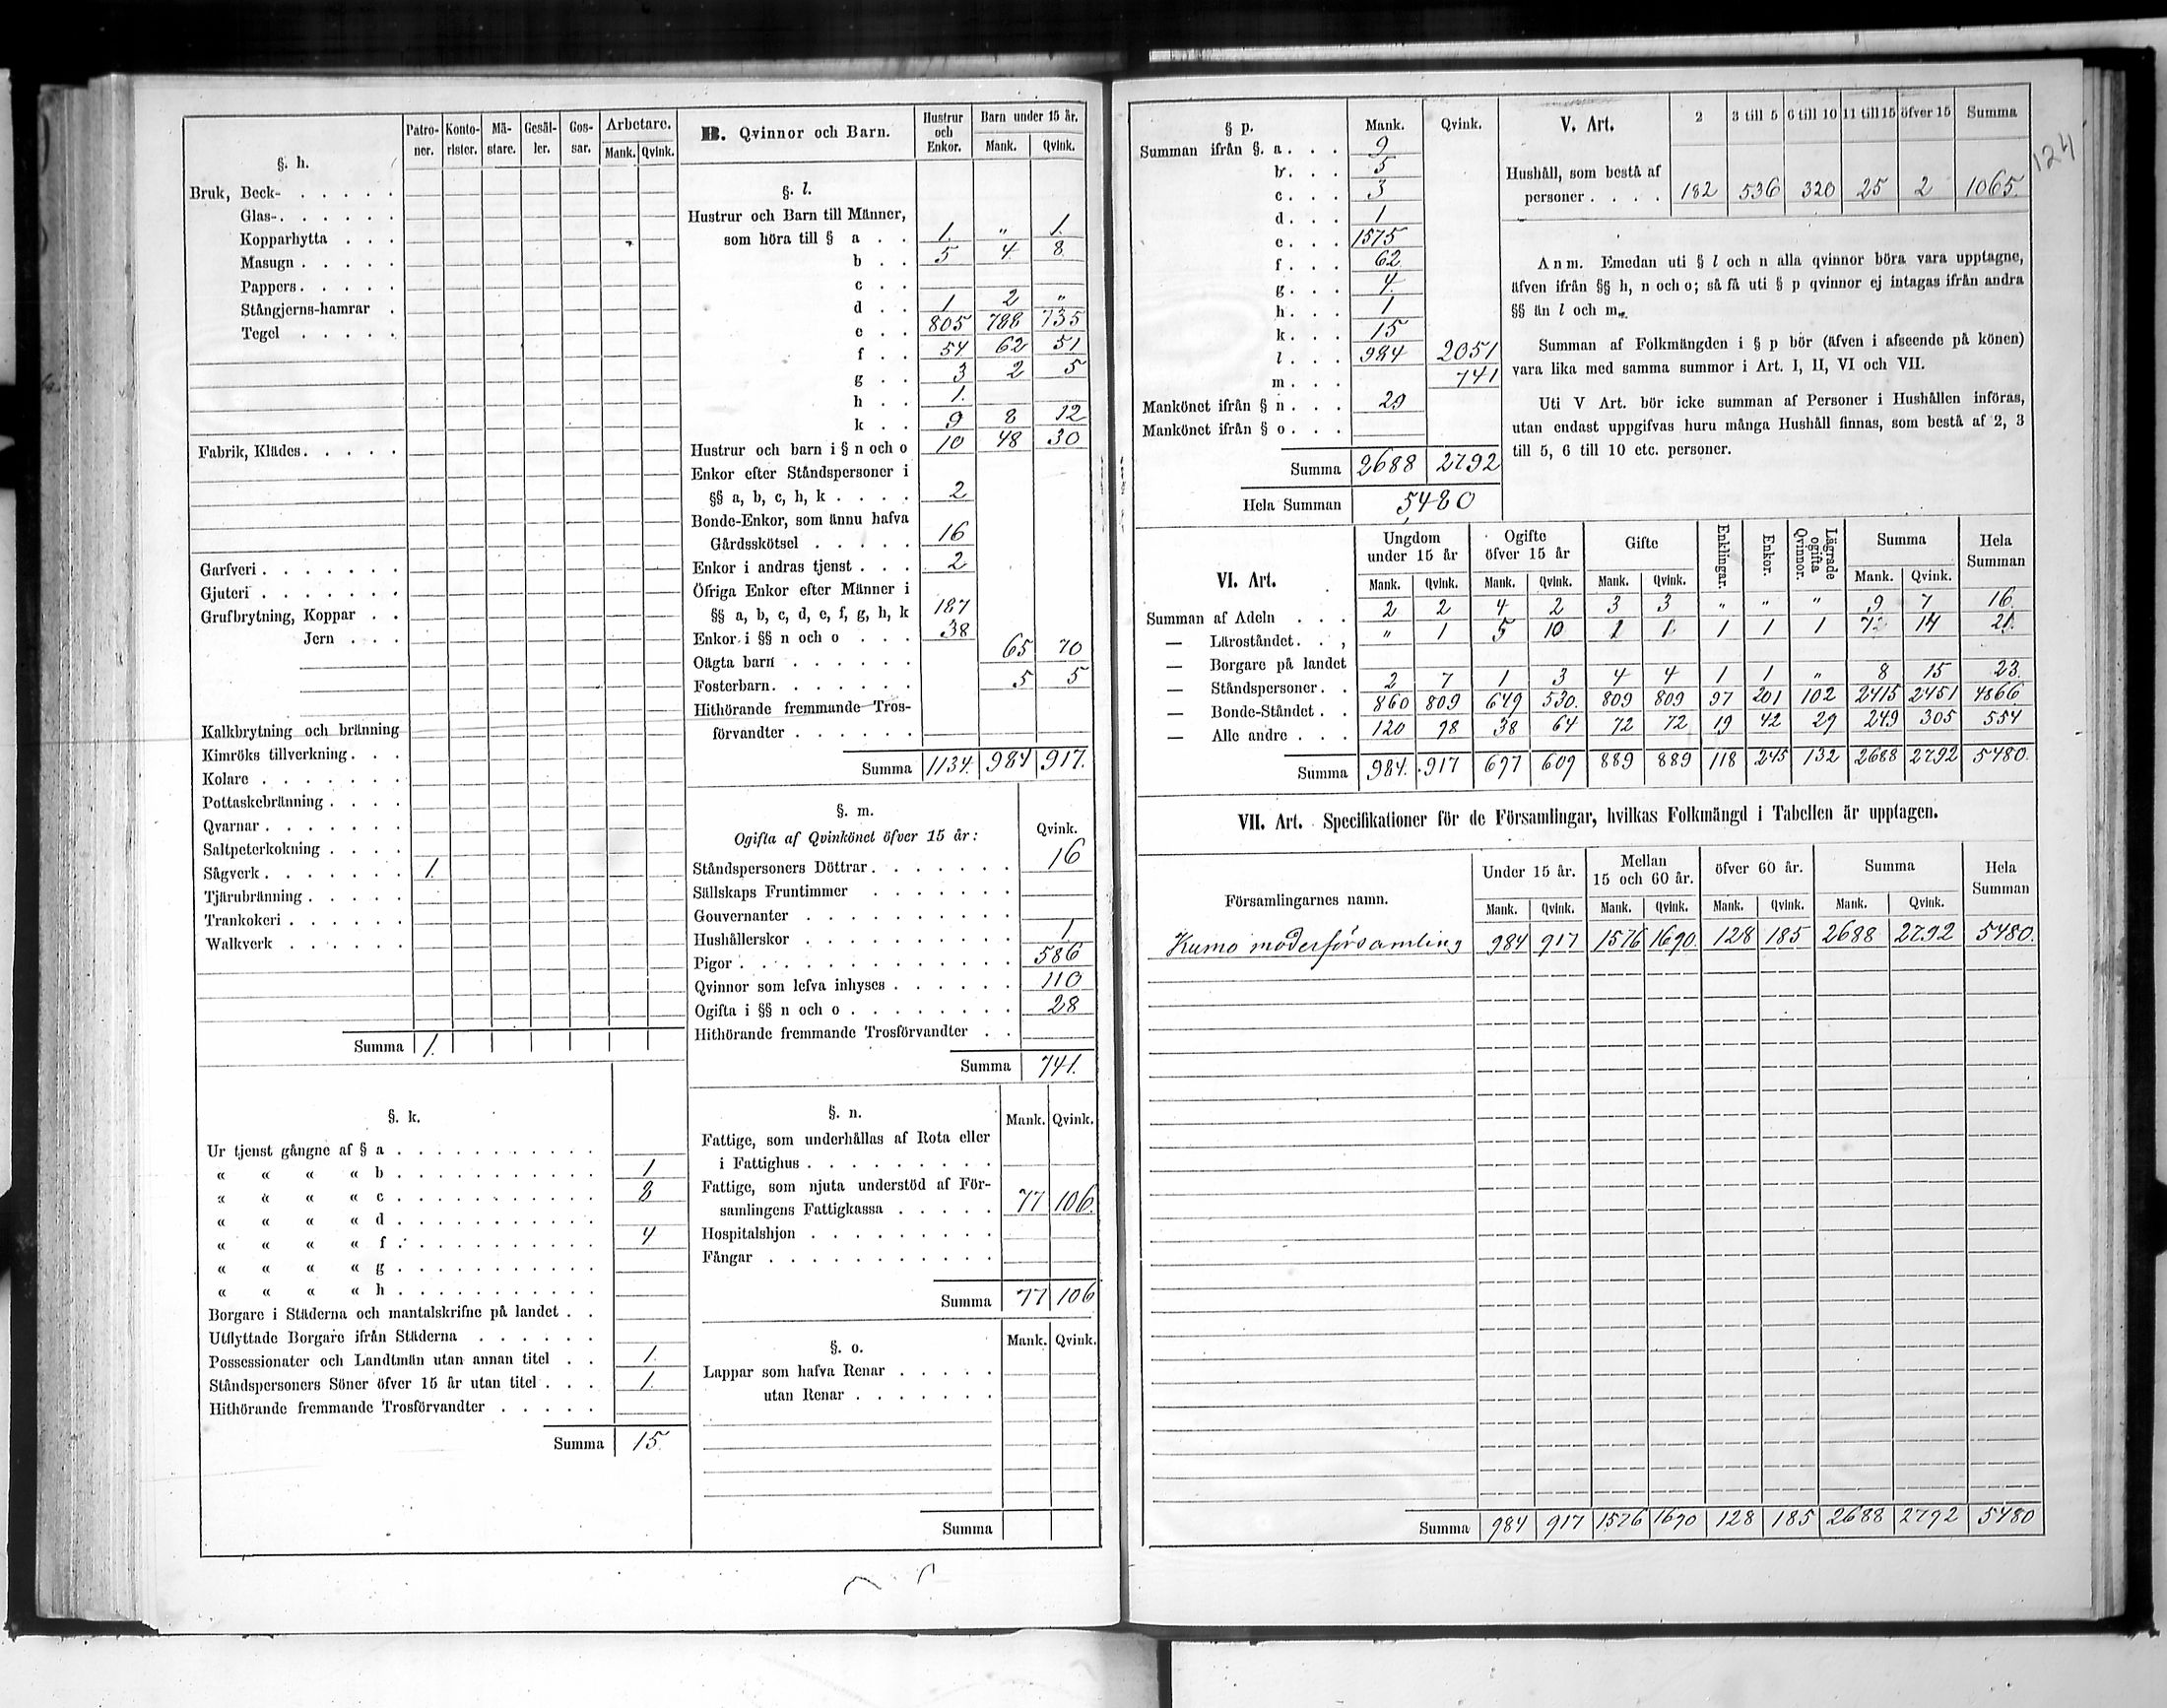 §. h.
Patroner. Kontorister. Mästare. Gesäller. Gossar. Arbetare.
Mank. Qvink.
Bruk, Beck- . . . . .
Glas- . . . . . .
Kopparhytta . . .
Masugn . . . . .
Pappers . . . . .
Stångjerns-hamrar .
Tegel . . . . .
Fabrik, Klädes . . . . .
Garfveri . . . . . . .
Gjuteri . . . . . . .
Grufbrytning, Koppar . .
Jern . . .
Kalkbrytning och bränning
Kimröks tillverkning . . .
Kolare . . . . . . .
Pottaskebränning . . . .
Qvarnar . . . . . . .
Saltpeterkokning . . . .
Sågverk . . . . . . . 1.
Tjärubränning . . . . .
Trankokeri . . . . . .
Walkverk . . . . . .
Summa 1.
§. k.
Ur tjenst gångne af § a . . . . . . . . . . .
« « « « b . . . . . . . . . . . 1
« « « « c . . . . . . . . . . . 8
« « « « d . . . . . . . . . . .
« « « « f . . . . . . . . . . . 4
« « « « g . . . . . . . . . . .
« « « « h . . . . . . . . . . .
Borgare i Städerna och mantalskrifne på landet . .
Utflyttade Borgare ifrån Städerna . . . . . .
Possessionater och Landtmän utan annan titel . . 1.
Ståndspersoners Söner öfver 15 år utan titel . . . 1.
Hithörande fremmande Trosförvandter . . . . .
Summa 15.
B. Qvinnor och Barn. Hustrur och Enkor. Barn under 15 år.
Mank. Qvink.
§. l.
Hustrur och Barn till Männer,
som höra till § a . . 1. „ 1.
b . . 5 4 8
c . .
d . . 1 2 „
e . . 805 788 735
f . . 54 62 51
g . . 3 2 5
h . . 1.
k . . 9 8 12
Hustrur och barn i § n och o 10 48 30
Enkor efter Ståndspersoner i
§§ a, b, c, h, k . . . . 2
Bonde-Enkor, som ännu hafva
Gårdsskötsel . . . . . 16
Enkor i andras tjenst . . . 2
Öfriga Enkor efter Männer i
§§ a, b, c, d, e, f, g, h, k 187
Enkor i §§ n och o . . . 38
Oägta barn . . . . . . 65 70
Fosterbarn . . . . . . . 5 5
Hithörande fremmande Trosförvandter . . . . . .
Summa 1134. 984 917.
§. m.
Ogifta af Qvinkönet öfver 15 år: Qvink.
Ståndspersoners Döttrar . . . . . . . 16
Sällskaps Fruntimmer . . . . . . .
Gouvernanter . . . . . . . . . .
Hushållerskor . . . . . . . . . . 1
Pigor . . . . . . . . . . . . . 586
Qvinnor som lefva inhyses . . . . . . 110
Ogifta i §§ n och o . . . . . . . . 28
Hithörande fremmande Trosförvandter . .
Summa 741.
§. n. Mank. Qvink.
Fattige, som underhållas af Rota eller
i Fattighus . . . . . . . . .
Fattige, som njuta understöd af Församlingens Fattigkassa . . . . . 77 106.
Hospitalshjon . . . . . . . . .
Fångar . . . . . . . . . . .
Summa 77 106
§. o. Mank. Qvink.
Lappar som hafva Renar . . . . .
utan Renar . . . . . . .
Summa
124
§ p. Mank. Qvink.
Summan ifrån §. a . . . 9
b . . . 5
c . . . 3
d . . . 1
e . . . 1575
f . . . 62
g . . . 4
h . . . 1
k . . . 15
l . . . 984 2051
m . . . 741
Mankönet ifrån § n . . . 29
Mankönet ifrån § o . . .
Summa 2688 2792
Hela Summan 5480
V. Art. 2 3 till 5 6 till 10 11 till 15 öfver 15 Summa
Hushåll, som bestå af
personer . . . . 182 536 320 25 2 1065.
Anm. Emedan uti § l och n alla qvinnor böra vara upptagne,
äfven ifrån §§ h, n och o; så få uti § p qvinnor ej intagas ifrån andra
§§ än l och m.
Summan af Folkmängden i § p bör (äfven i afseende på könen)
vara lika med samma summor i Art. I, II, VI och VII.
Uti V Art. bör icke summan af Personer i Hushållen införas,
utan endast uppgifvas huru många Hushåll finnas, som bestå af 2, 3
till 5, 6 till 10 etc. personer.
VI. Art. Ungdom under 15 år Ogifte öfver 15 år Gifte Enklingar. Enkor. Lägrade ogifta Qvinnor. Summa Hela Summan
Mank. Qvink. Mank. Qvink. Mank. Qvink. Mank. Qvink.
Summan af Adeln . . . 2 2 4 2 3 3 „ „ „ 9 7 16.
— Läroståndet . . , „ 1 5 10 1 1 1 1 1 7 14 21.
— Borgare på landet
— Ståndspersoner . . 2 7 1 3 4 4 1 1 „ 8 15 23.
— Bonde-Ståndet . . 860 809 649 530. 809 809 97 201 102 2415 2451 4866
— Alle andre . . . 120 98 38 64 72 72 19 42 29 249 305 554
Summa 984. 917 697 609 889 889 118 245 132 2688 2792 5480.
VII. Art. Specifikationer för de Församlingar, hvilkas Folkmängd i Tabellen är upptagen.
Församlingarnes namn. Under 15 år. Mellan 15 och 60 år. öfver 60 år. Summa Hela Summan
Mank. Qvink. Mank. Qvink. Mank. Qvink. Mank. Qvink.
Kumo moderförsamling 984 917 1576 1690. 128 185 2688 2792 5480.
Summa 984 917 1576 1690 128 185 2688 2792 5480